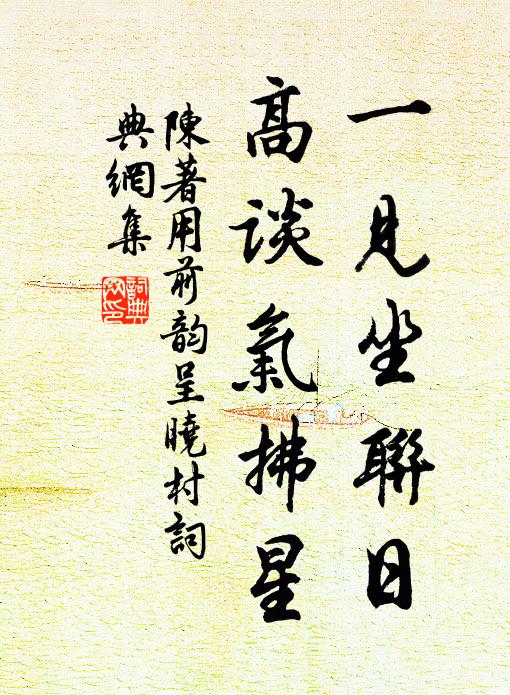 一見坐聯日
高談氣拂星
陳著用前韵呈曉村詞
典網集
詞典网印